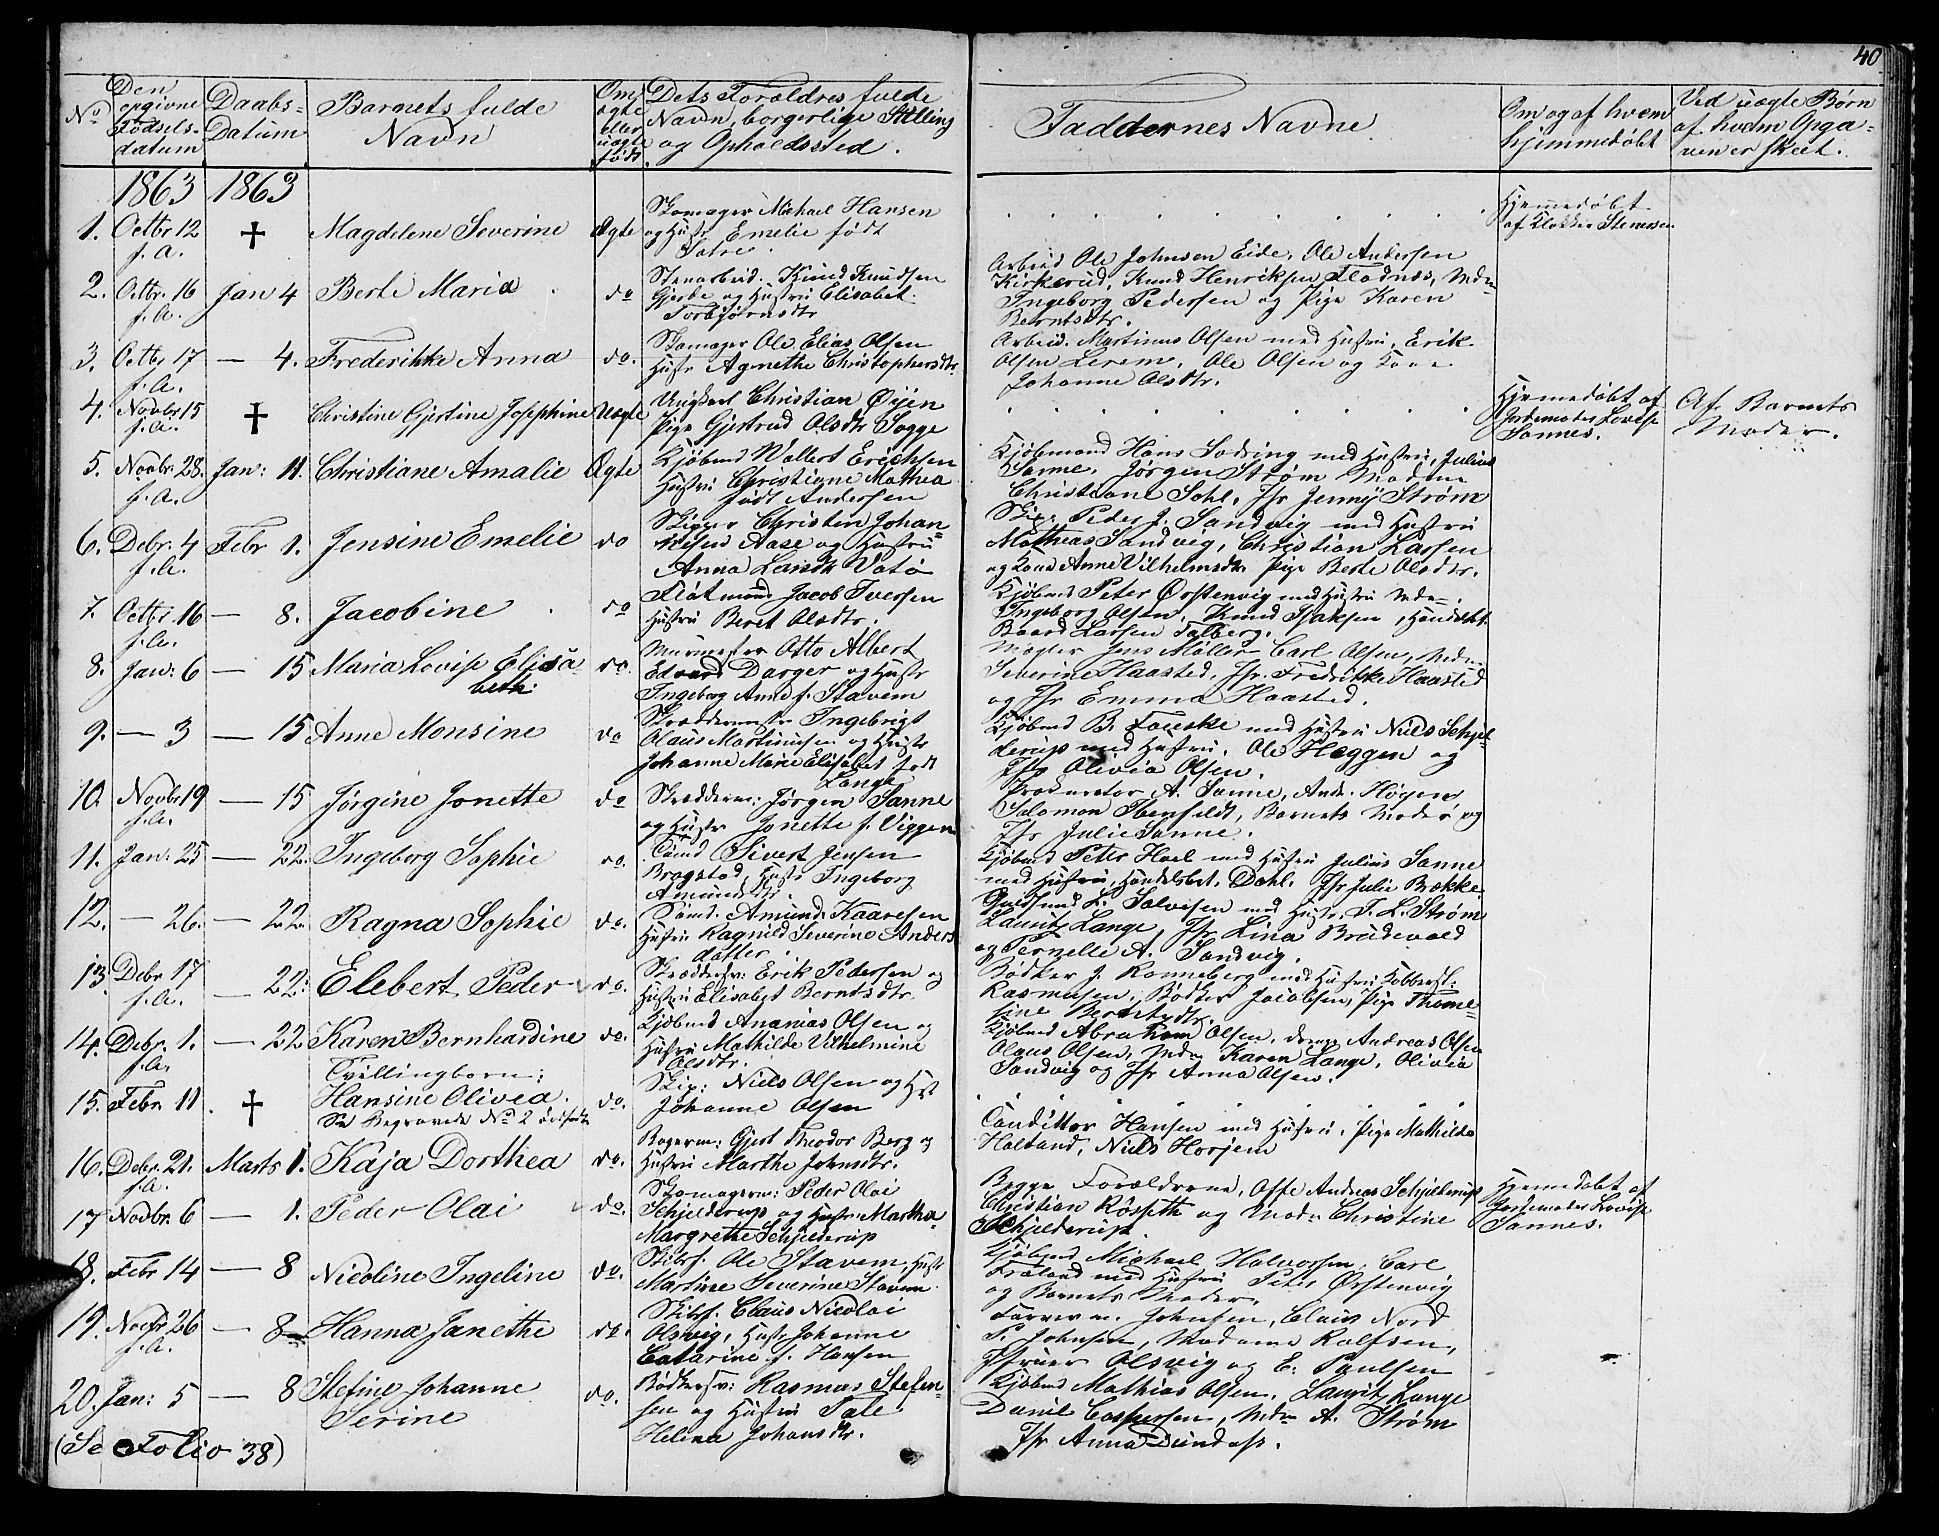 40
No
Den opgivne Fødsels-datum
Daabs-Datum
Barnets fulde Navn
Om ægte eller uægte født
Dets Forældres fulde Navn, borgerlige Stilling og Opholdssted.
Faddernes Navne
Om og af hvem hjemmedøbt
Ved uægte Børn af hvem Opgaven er skeet.
1863 1863
1. Octbr 12 f.A. † Magdelene Severine Ægte
Skomager Michael Hansen
og Hustr Emelie født
Hjemmedøbt
af Klokker Stenersen
2. Octbr. 16 f.A. Jan 4 Berte Maria do
Stenarbeid. Knud Knudsen
Gjerde og Hustru Elisabet
Torbjørnsdtr
Arbeid Ole Johnsen Eide, Ole Andersen
Kirkerud, Knud Henriksen Flodnæs, Mdm
Ingeborg Pedersen og Pige Karen
Berntsdtr.
3. Octbr 17 f.A. — 4. Frederikke Anna do.
Skomager Ole Elias Olsen
Hustr Agnethe Christophersdtr.
Arbeid. Martinus Olsen med Hustru, Erik
Olsen Lerem, Ole Olsen og Kone
Johanne Olsdtr.
4. Novbr 15 f.A. † Christine Gjertine Josephine Uægte
Ungkarl Christian Øyen
Pige Gjertrud Olsdtr Sogge
Hjemmedøbt af
Jordemoder Lovise
Sannes.
Af Barnets
Moder.
5. Novbr. 28. f.A. Jan: 11. Christiane Amalie Ægte
Kjøbmd Wollert Erichsen
Hustru Christiane Mathea
født Andersen
Kjøbmand Hans Sodring med Hustru, Julius
Sanne, Jørgen Strøm Madm
Christiane Dohl, Jfr Jenny Strøm
6. Debr. 4 f.A. Febr 1. Jensine Emelie do
Skipper Christen Johan-
nesen Aase og Hustru
Anna Larsdtr Vatø
Skip. Peder J. Sandvig med Hustru
Mathias Sandvig, Christian Larsen
og Kone Anne Vilhelmsdtr. Pige Berte Olsdtr.
7. Octbr. 16 f.A. — 8. Jacobine do
Flåtmand Jacob Iversen
Hustru Beret Olsdtr.
Kjøbmd Peter Ørstenvig med Hustru Mdm.
Ingeborg Olsen, Knud Isaksen, Handelsbt.
Baard Larsen Talberg.
8. Jan: 6 — 15 Maria Lovise Elisa-
beth. do.
Murmester Otto Albert
Edvard Darger og Hustr
Ingeborg Anne f. Stavem
Mægler Jens Møller Carl Olsen, Mdm
Severine Haasted, Jfr. Fredrikke Haasted
og Jfr Emma Haasted.
9. — 3 — 15 Anne Monsine do
Skræddermester Ingebrigt
Olaus Martinusen og Hustr
Johanne Marie Elisabet født
Lange
Kjøbmd B. Foeske med Hustru Niels Schjel-
derup med Hustru, Ole Heggen og
Jfr Olivia Olsen.
10. Novbr 19 f.A. — 15 Jørgine Jonette do
Skrædderm: Jørgen Sanne
og Hustr Jonette f. Viggen
Prokurator A. Sanne, And. Høyen
Salomon Ibenfeldt, Barnets Moder og
Jfr Julie Sanne.
11. Jan: 25 — 22. Ingeborg Sophie do.
Tømd Sivert Jensen
Bragstad, Hustr Ingeborg
Amundsdtr.
Kjøbmd Peter Hoel med Hustru Julius Sanne
med Hustru, Handelsbet. Dahl. Jfr Julie Bække
12. — 26. — 22. Ragna Sophie do.
Tømd. Amund Kaaresen
Hustru Ragnild Severine Anders
datter.
Guldsmd L. Salvesen med Hustr, T. L. Strøm
Lauritz Lange, Jfr Lina Brudevold
og Pernelle A. Sandvig.
13. Debr 17 f.A. — 22. Elebert Peder do.
Skræddersv: Erik Pedersen og
Hustru Elisabet Berntsdtr.
Bødker J. Ronneberg med Hustru Kobberst:
Rasmusen, Bødker Jacobsen, Pige Thome-
sine Berntsdtr.
14. Debr. 1. f.A. — 22 Karen Bernhardine do.
Kjøbmd Ananias Olsen og
Hustru Mathilde Vilhelmine
Olsdtr.
Kjøbmd Abraham Olsen, Dreng Andreas Olsen
Olaus Olsen, Mdm Karen Lange, Olivia
Sandvig og Jfr Anna Olsen.
15. Febr 11. † Tvillingbørn:
Hansine Olivea.
Se Begravede No 2 do.
Skip: Niels Olsen og Hust
Johanne Olsen
16. Debr. 21. f.A. Marts 1. Kaja Dorthea do.
Bagerm: Gjert Theodor Berg og
Hustru Marthe Johnsdtr.
Conditor Hansen med Hustru, Pige Mathilde
Holtand, Niels Horjem
17 Novbr. 6 — 1. Peder Olai do.
Skomagerm: Peder Olai
Schjelderup og Hustr Martha
Margrethe Schjelderup
Begge Forældrene, Offe Andreas Schjelderup
Christian Røsseth og Madm Christine
Schjelderup.
Hjemmedøbt af
Jordemoder Lovise
Sannes.
18. Febr 14 — 8 Nicoline Ingeline do.
Skibsf. Ole Stavem, Hustr
Martine Severine Stavem
Kjøbmd Michael Halvorsen, Carl
Froland med Hustru Peter Ørstenvig
og Barnets Moder.
19. Novbr 26 f.A. — 8 Hanna Janethe do.
Skibsf. Claus Nicolai
Olsvig, Hustr Johanne
Catarine f. Hansen
Farverm. Johnsen, Claus Nord
P. Johnsen, Madame Rolfsen,
Jfruer Olsvig og E. Paulsen
20. Jan: 5 — 8 Stefine Johanne
Serine do.
Bødkersv: Rasmus Stefen-
sen og Hustru Tale
Helena Johansdtr.
Kjøbmd Mathias Olsen, Laurit Lange
Daniel Caspersen, Mdm A. Strøm
Jfr Anna Dundass.
(Se Folio 38)